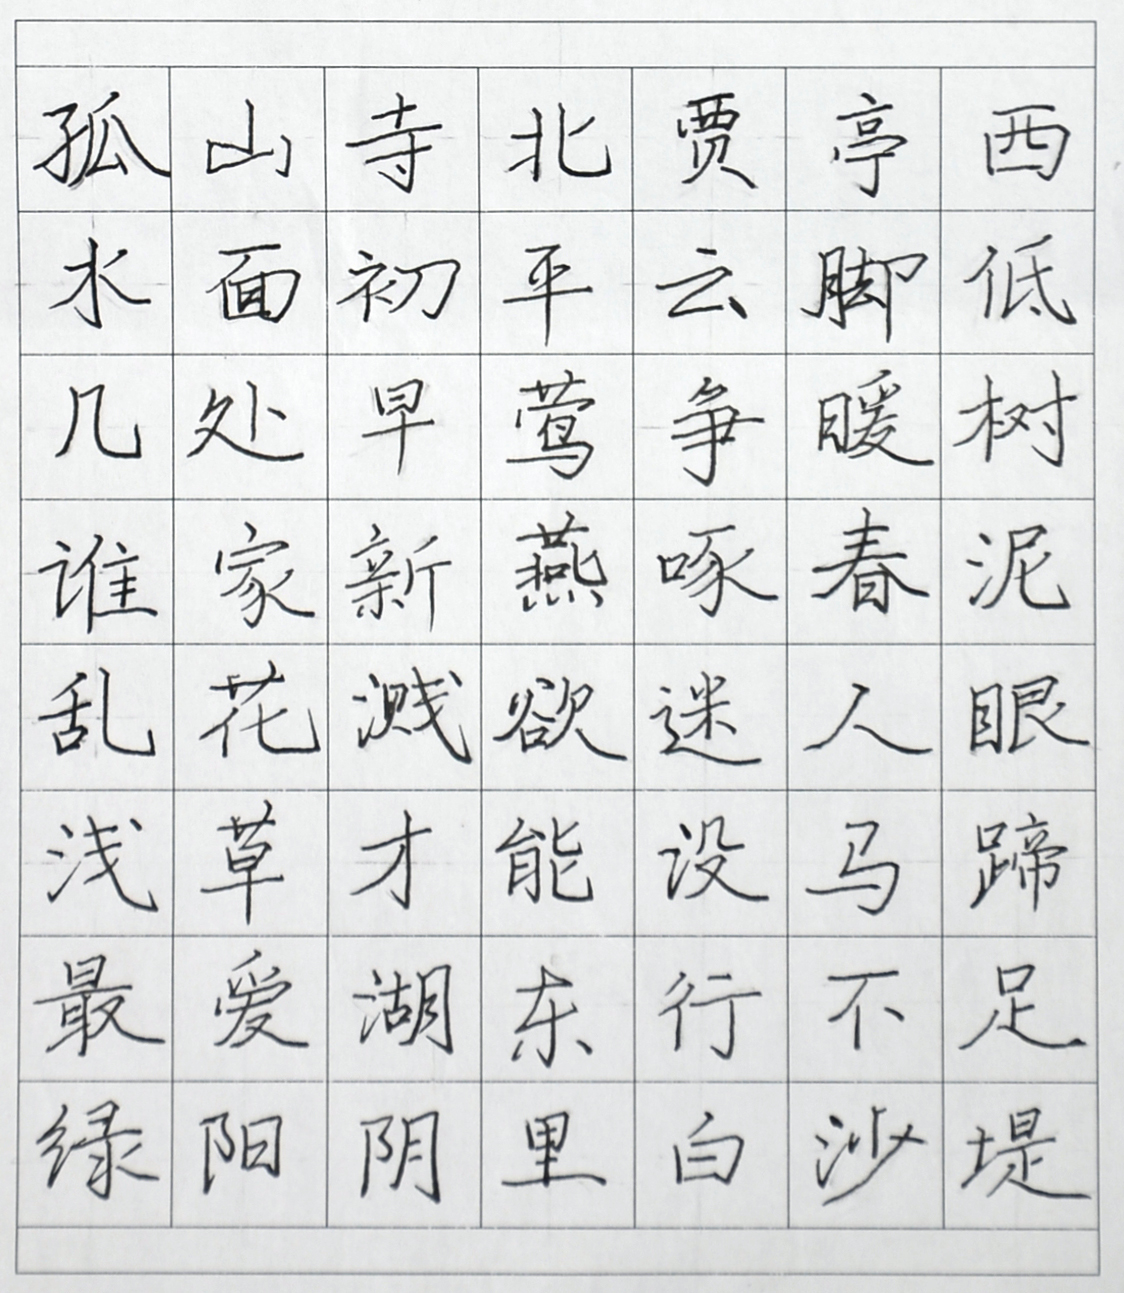 孤山寺北贾亭西
水面初平云脚低
几处早莺争暖树
谁家新燕啄春泥
乱花溅欲迷人眼
浅草才能没马蹄
最爱湖东行不足
绿阳阴里白沙堤